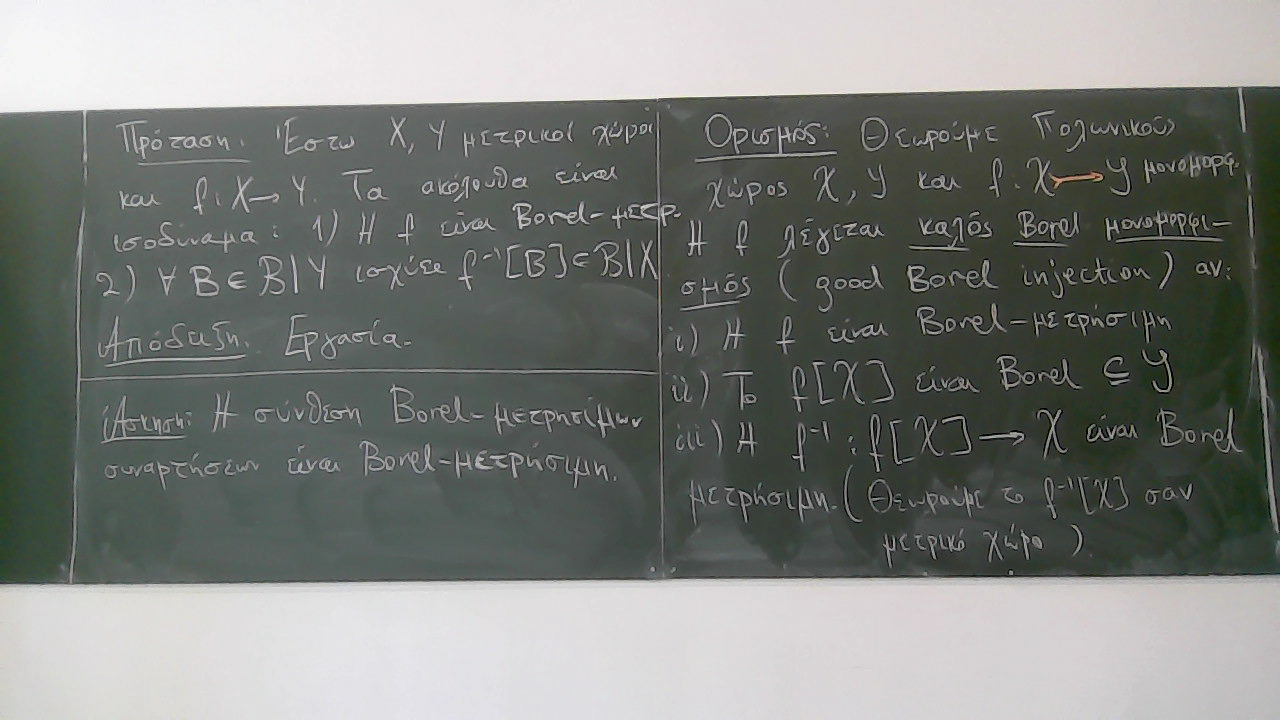 Πρόταση. Έστω X, Y μετρικοί χώροι
και f: X → Y. Τα ακόλουθα είναι
ισοδύναμα: 1) Η f είναι Borel-μετρ.
2) ∀ B ∈ B|Y ισχύει f⁻¹[B] ∈ B|X
Απόδειξη. Εργασία.
Άσκηση: Η σύνθεση Borel-μετρησίμων
συναρτήσεων είναι Borel-μετρήσιμη.
Ορισμός: Θεωρούμε Πολωνικούς
χώρος X, Y και f: X ↣ Y μονομορφ.
Η f λέγεται καλός Borel μονομορφι-
σμός (good Borel injection) αν:
i) Η f είναι Borel-μετρήσιμη
ii) Το f[X] είναι Borel ⊆ Y
iii) Η f⁻¹: f[X] → X είναι Borel
μετρήσιμη. (Θεωρούμε το f⁻¹[X] σαν
μετρικό χώρο).